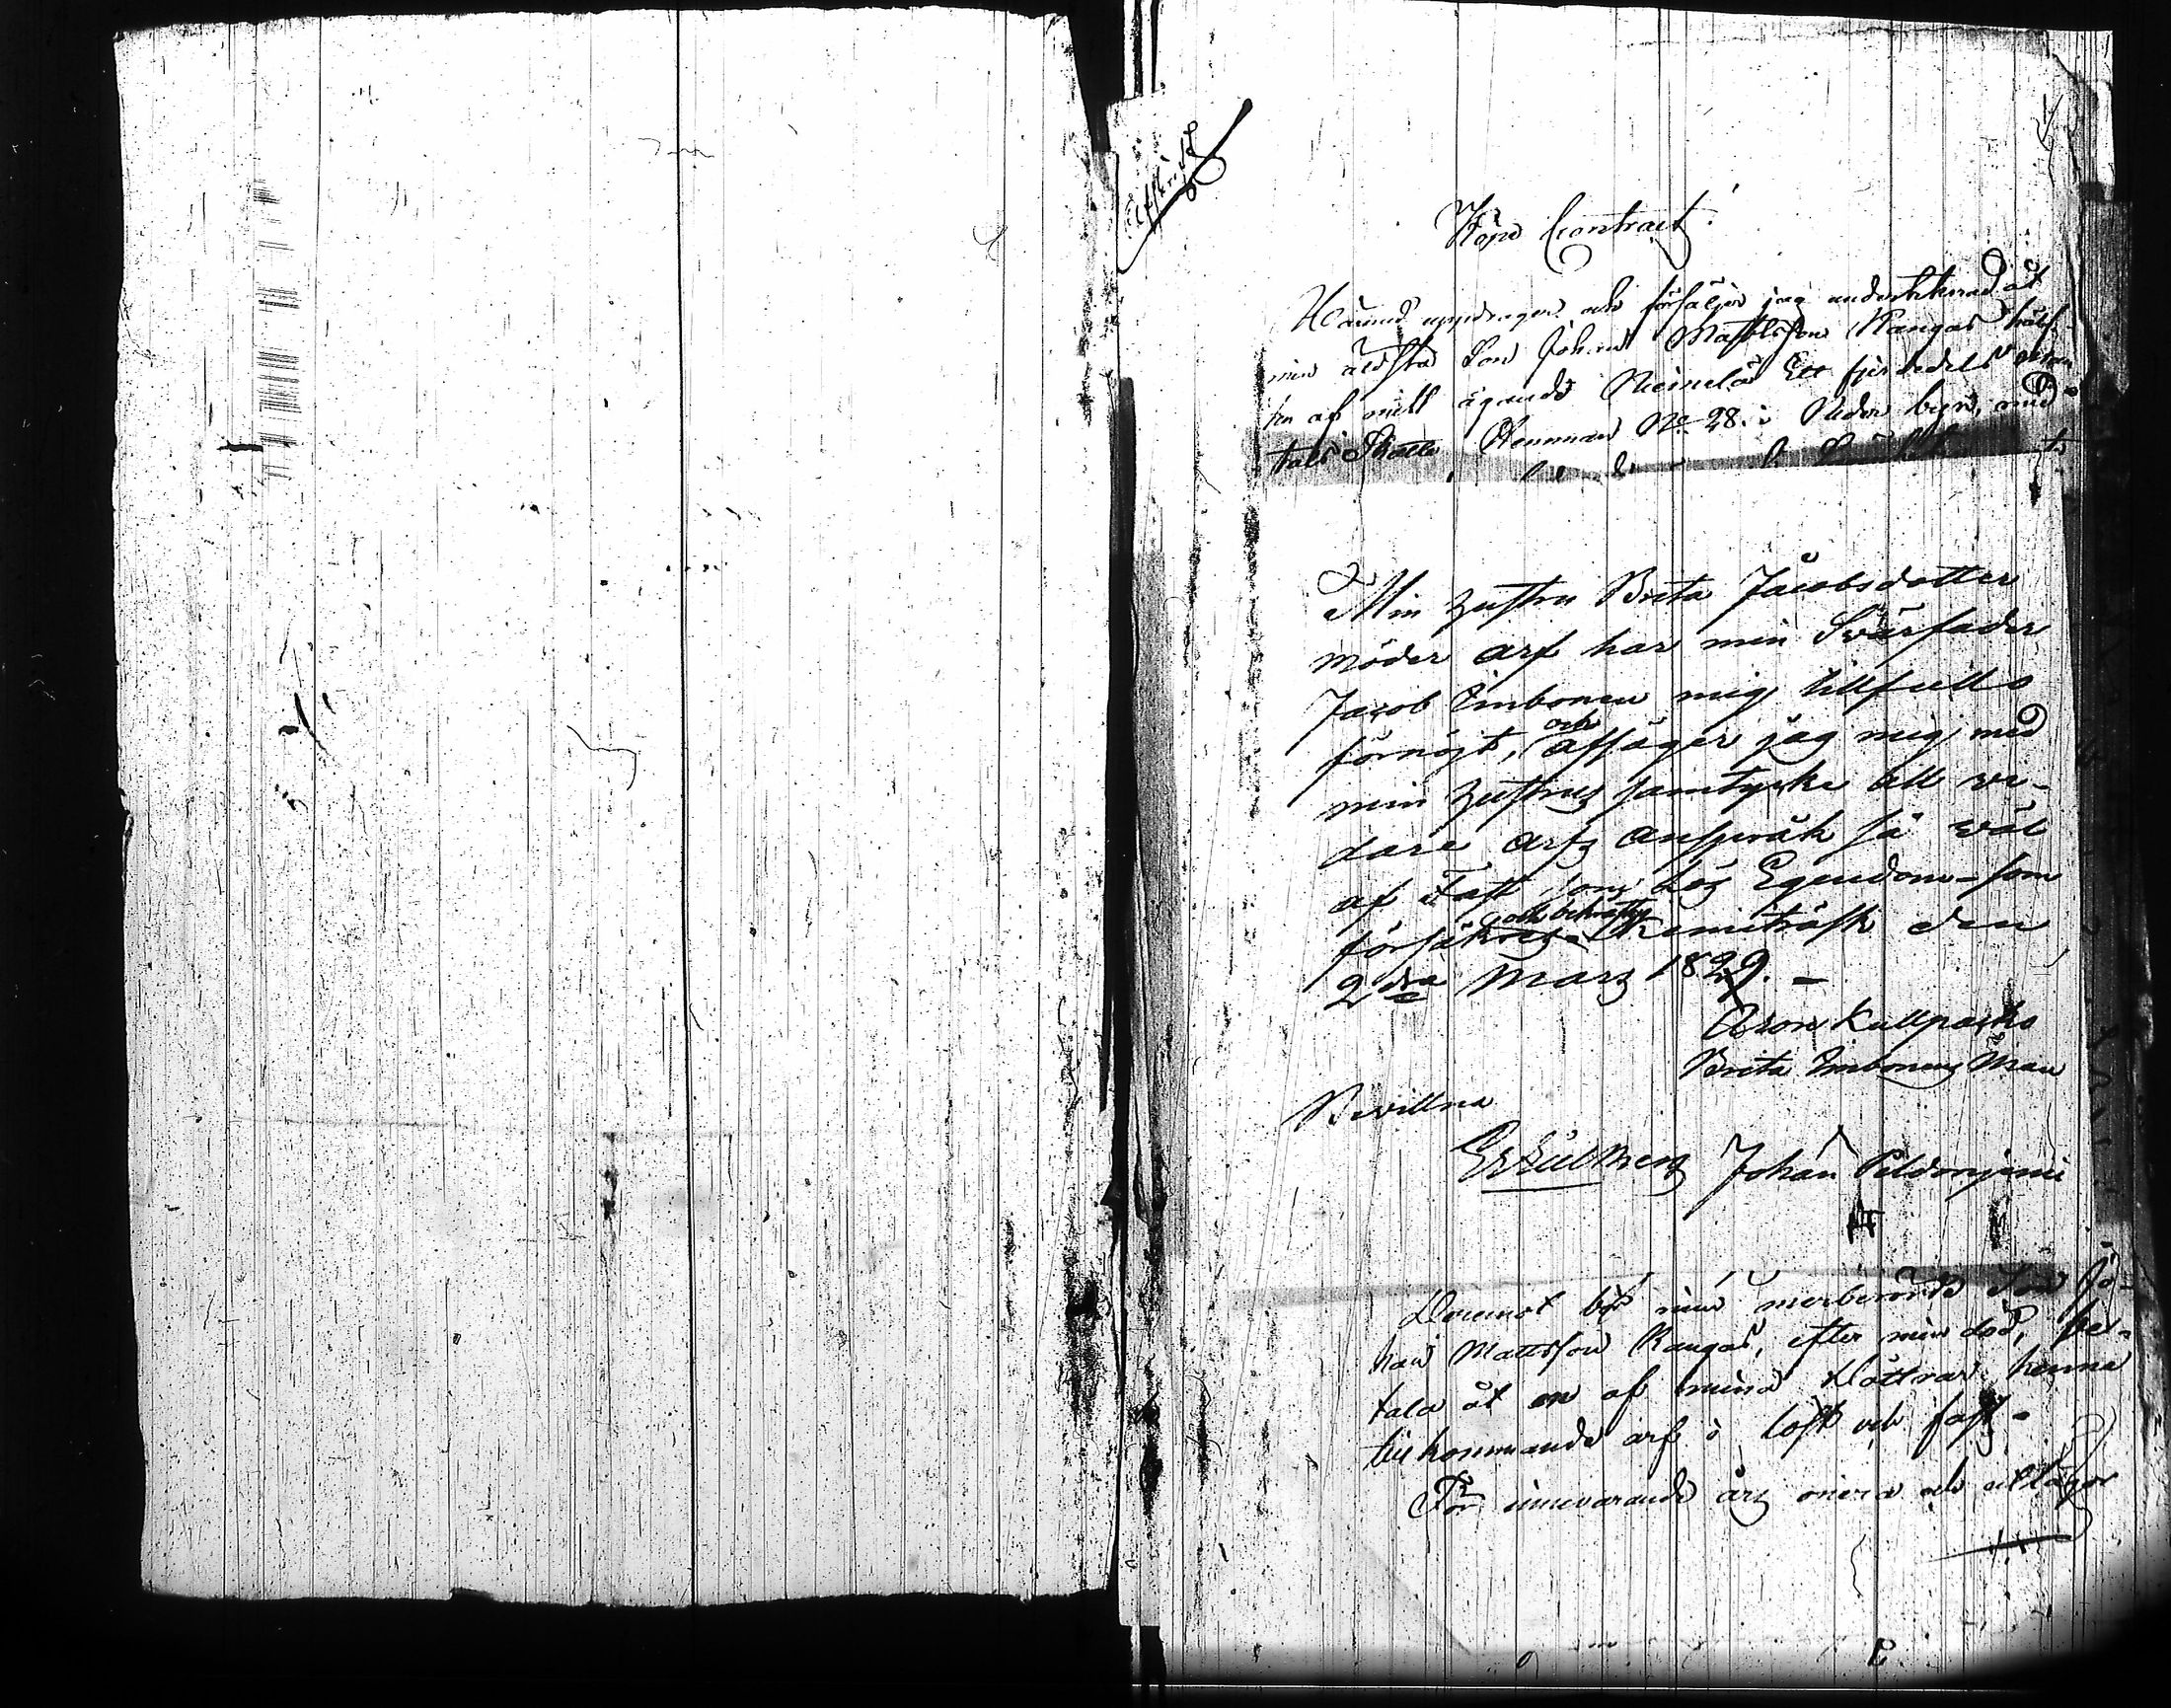 Afskrift
Köpe Contract.
Härmed uppdrager och försäljer jag undertecknad åt
min äldsta Son Johan Mattsson Kangas hälf-
ten af mitt ägande Niemelä Ett fjerdedels man
tals Skatte Hemman No 28. i Neder byn, med
Min hustru Brita Jacobsdotter
möder arf har min Svärfader
Jacob Imbonen mig tillfullo
förnögt, och afsäger jag mig med
min hustrus samtycke all vi-
dare arfs anspråk så wäl
af Fast som lös Egendom - som
försäkras och bekräftas Kemiträsk den
2dra Mars 1829. -
Aron Kullpacko
Brita Imbonens Man
Bevittna
Johan Peldonjemi
Deremot bör min merberörde Son Jo-
han Mattsson Kangas, efter min död, be-
tala åt en af mina Döttrar henne
tillkommande arf i löst och fast -
För innevarande års onera och utlagor